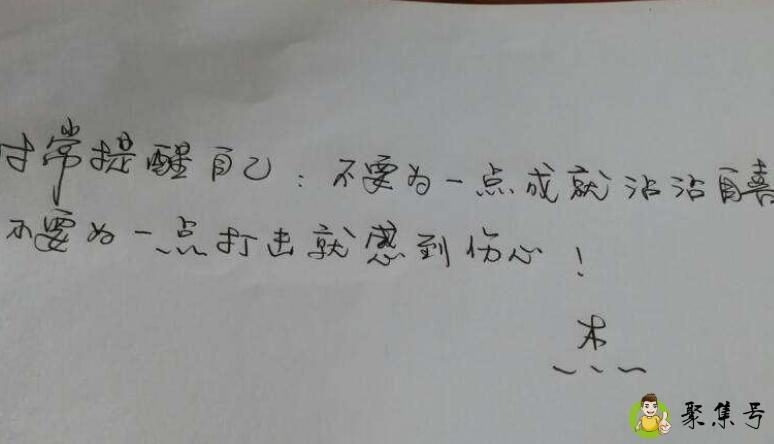 时常提醒自己：不要为一点成就沾沾自喜
不要为一点打击就感到伤心！
木
聚集号